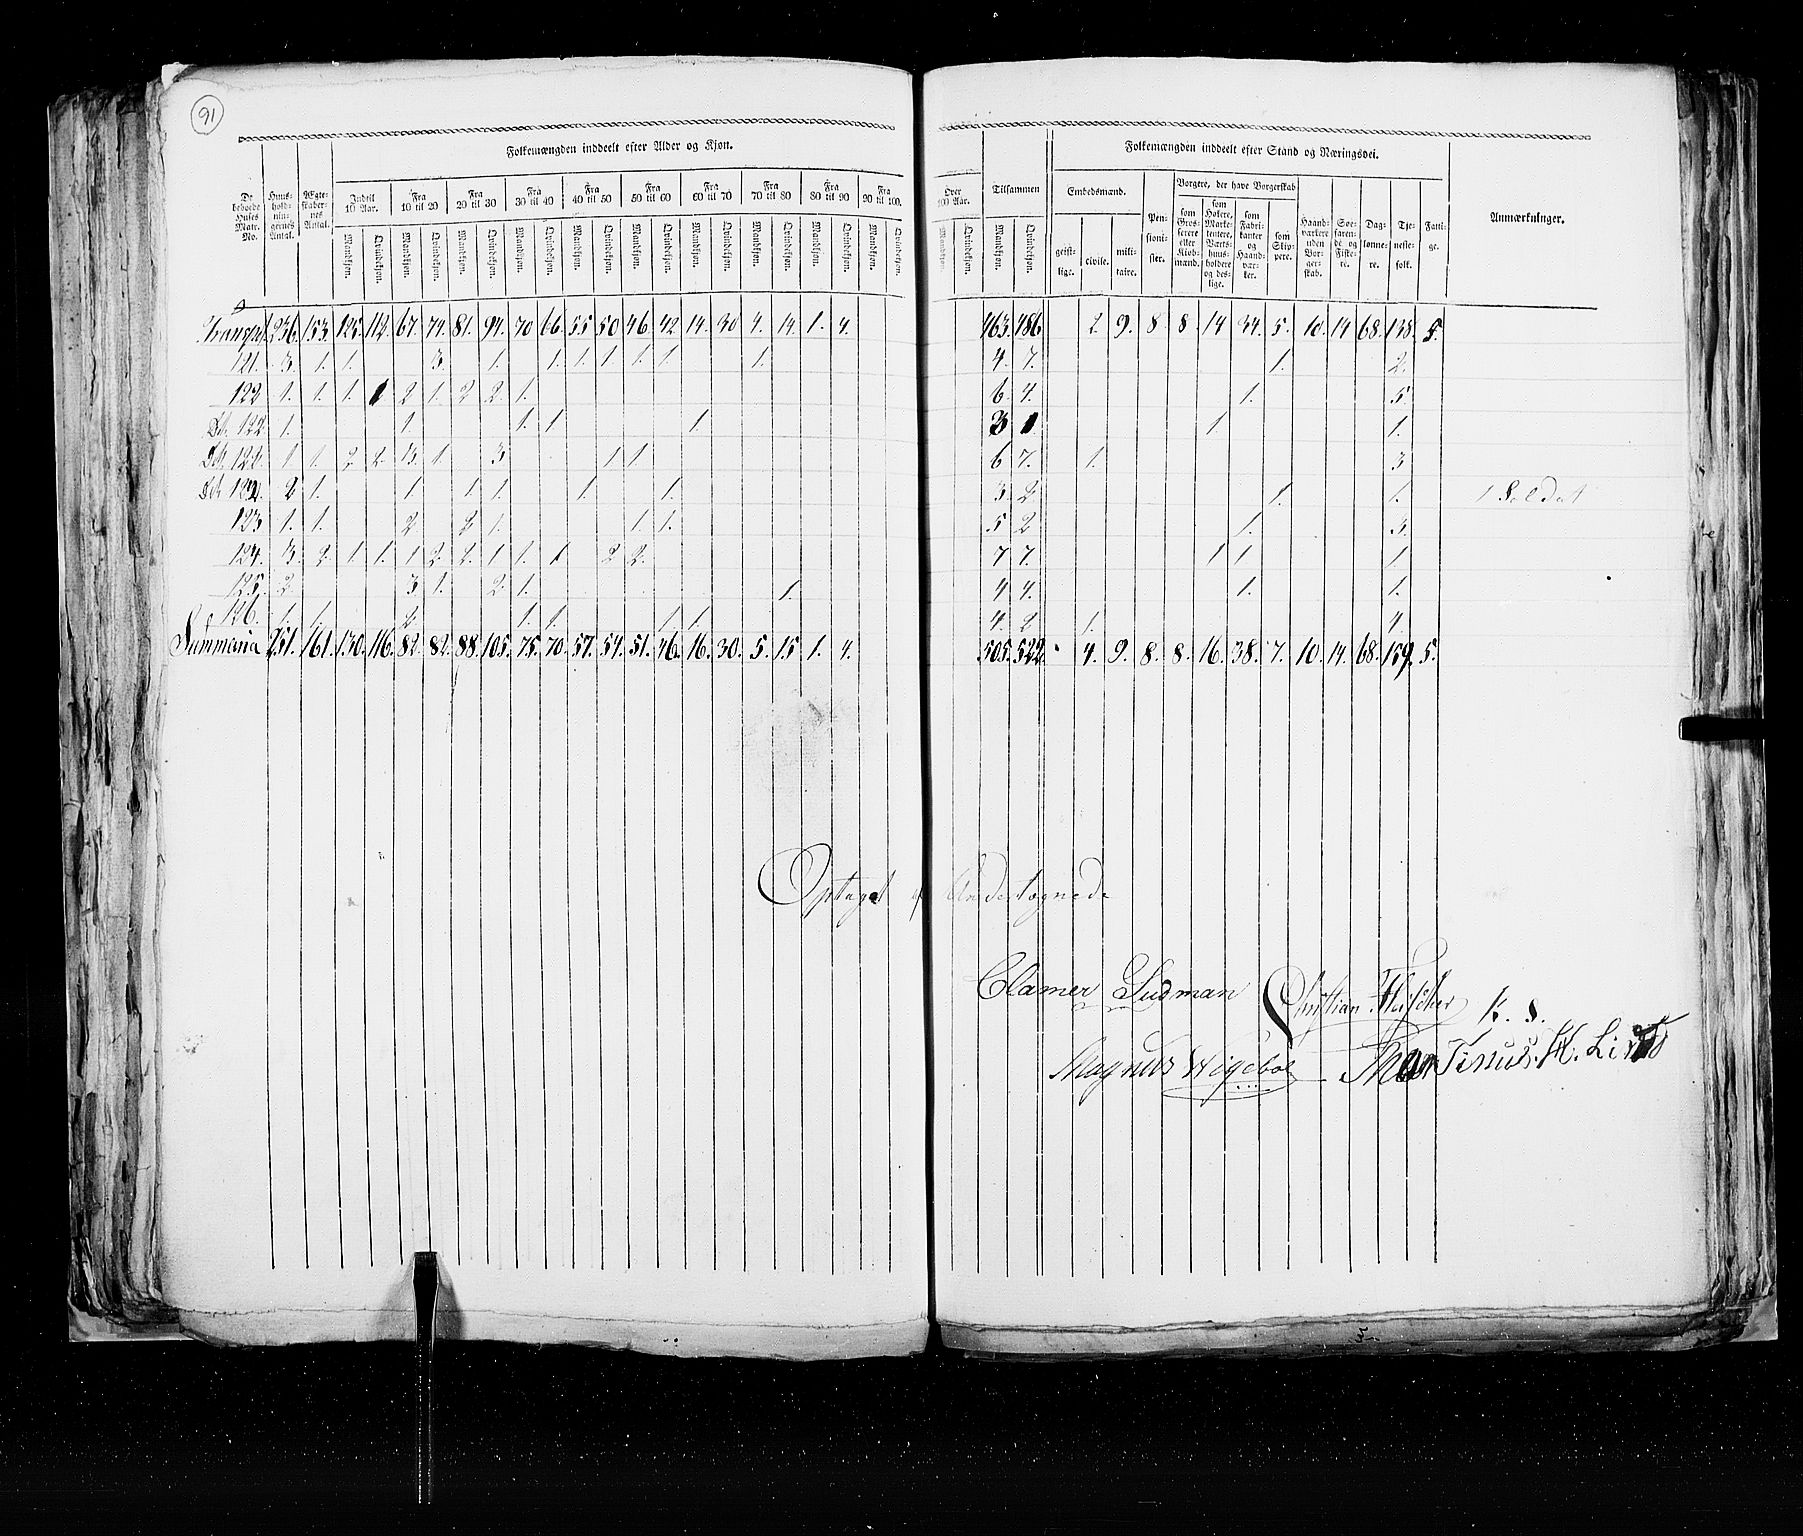 91
Folkemængden inddeelt efter Alder og Kjøn.
De beboede Huses Matr. No.
Huus-hold-nin-gernes Antal.
Ægte-skaber-nes Antal.
Indtil 10 Aar. Fra 10 til 20 Fra 20 til 30 Fra 30 til 40 Fra 40 til 50 Fra 50 til 60 Fra 60 til 70 Fra 70 til 80 Fra 80 til 90 Fra 90 til 100. Over 100 Aar. Tilsammen
Mandkjøn. Qvindekjøn. Mandkjøn. Qvindekjøn. Mandkjøn. Qvindekjøn. Mandkjøn. Qvindekjøn. Mandkjøn. Qvindekjøn. Mandkjøn. Qvindekjøn. Mandkjøn. Qvindekjøn. Mandkjøn. Qvindekjøn. Mandkjøn. Qvindekjøn. Mandkjøn. Qvindekjøn. Mandkjøn. Qvindekjøn. Mandkjøn. Qvindekjøn.
Folkemængden inddeelt efter Stand og Næringsvei.
Embedsmænd. geist-lige. civile. mili-taire.
Pen-sioni-ster.
Borgere, der have Borgerskab
som Gros-serere eller Kiøb-mænd.
som Høkere, Marke-tentere, Værts-huus-holdere og des-lige.
som Fabri-kanter og Haand-vær-kere.
som Skip-pere.
Haand-værkere uden Bor-ger-skab.
Søe-faren-de og Fiske-re.
Dag-lønne-re.
Tje-neste-folk.
Fatti-ge.
Anmærkninger.
236. 153. 125. 112. 67. 74. 81. 94. 70 66. 55 50 46 42 14. 30 4. 14. 1. 4. 463. 486. 2. 9. 8 8 14 34. 5. 10. 14 68. 138. 5.
121. 3. 1. 1. 3. 1. 1. 1. 1. 1. 1. 1. 4. 7. 1. 2.
122 1. 1. 1. 1 2 1. 2 2. 1. 6. 4. 1. 5
122 1. 1. 1. 1. 1. 3 1. 1 1.
1 1. 2 2. 3. 1. 3 1 1. 6 7. 1. 3
2 1. 1. 1. 1. 1. 1. 3. 2. 1. 1. 1 Soldat
123 1. 1. 2 2 1. 1. 1. 5 2 1. 3.
124. 3. 2. 1. 1. 1 2. 2. 1 1. 1 2 2. 7 7. 1 1. 1
125. 2 3 1. 2. 1. 1. 4 4. 1. 1.
126. 1. 1. 2 1. 1. 1. 1. 4. 2 1. 4.
Summaria 251. 161. 130. 116. 82. 82. 88. 105. 75. 70. 57. 54. 51. 46. 16. 30. 5. 15 1. 4. 505. 522. 4. 9. 8. 8. 16. 38. 7. 10. 14. 68. 159. 5.
Optaget af Undertegnede
Clamer Sudman Christian Fleischer K. S.
Magnus